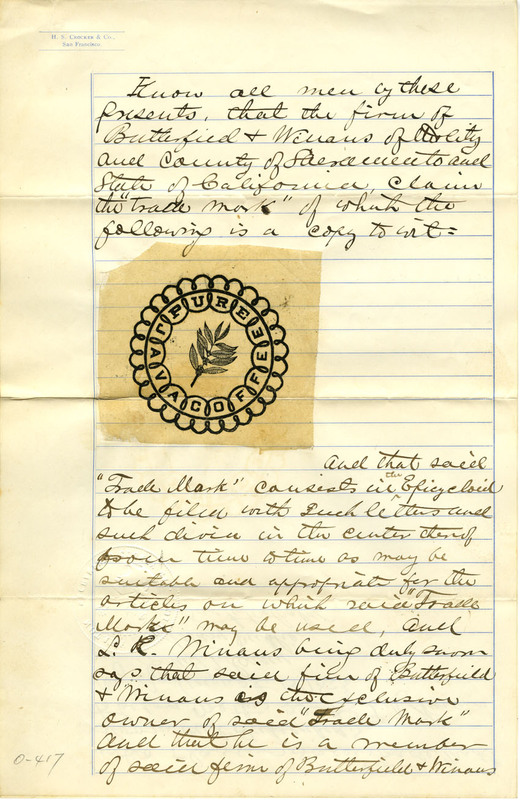 H. S. Crocker & Co.,
San Francisco
Know all men by these
presents, that the firm of
Butterfield & Winans of the City
and County of Sacramento and
State of California, claim
the "trade mark" of which the
following is a copy to wit =
PURE JAVA COFFEE
And that said
"Trade Mark" consists in the Epicycloid
to be filled with such letters and
such divice in the center thereof
from time to time as may be
suitable and appropriate for the
articles on which said "Trade
Mark" may be used, And
L. R. Winans being duly sworn
says that said firm of Butterfield
& Winans is the exclusive
owner of said "Trade Mark"
and that he is a member
of said firm of Butterfield & Winans
0-417